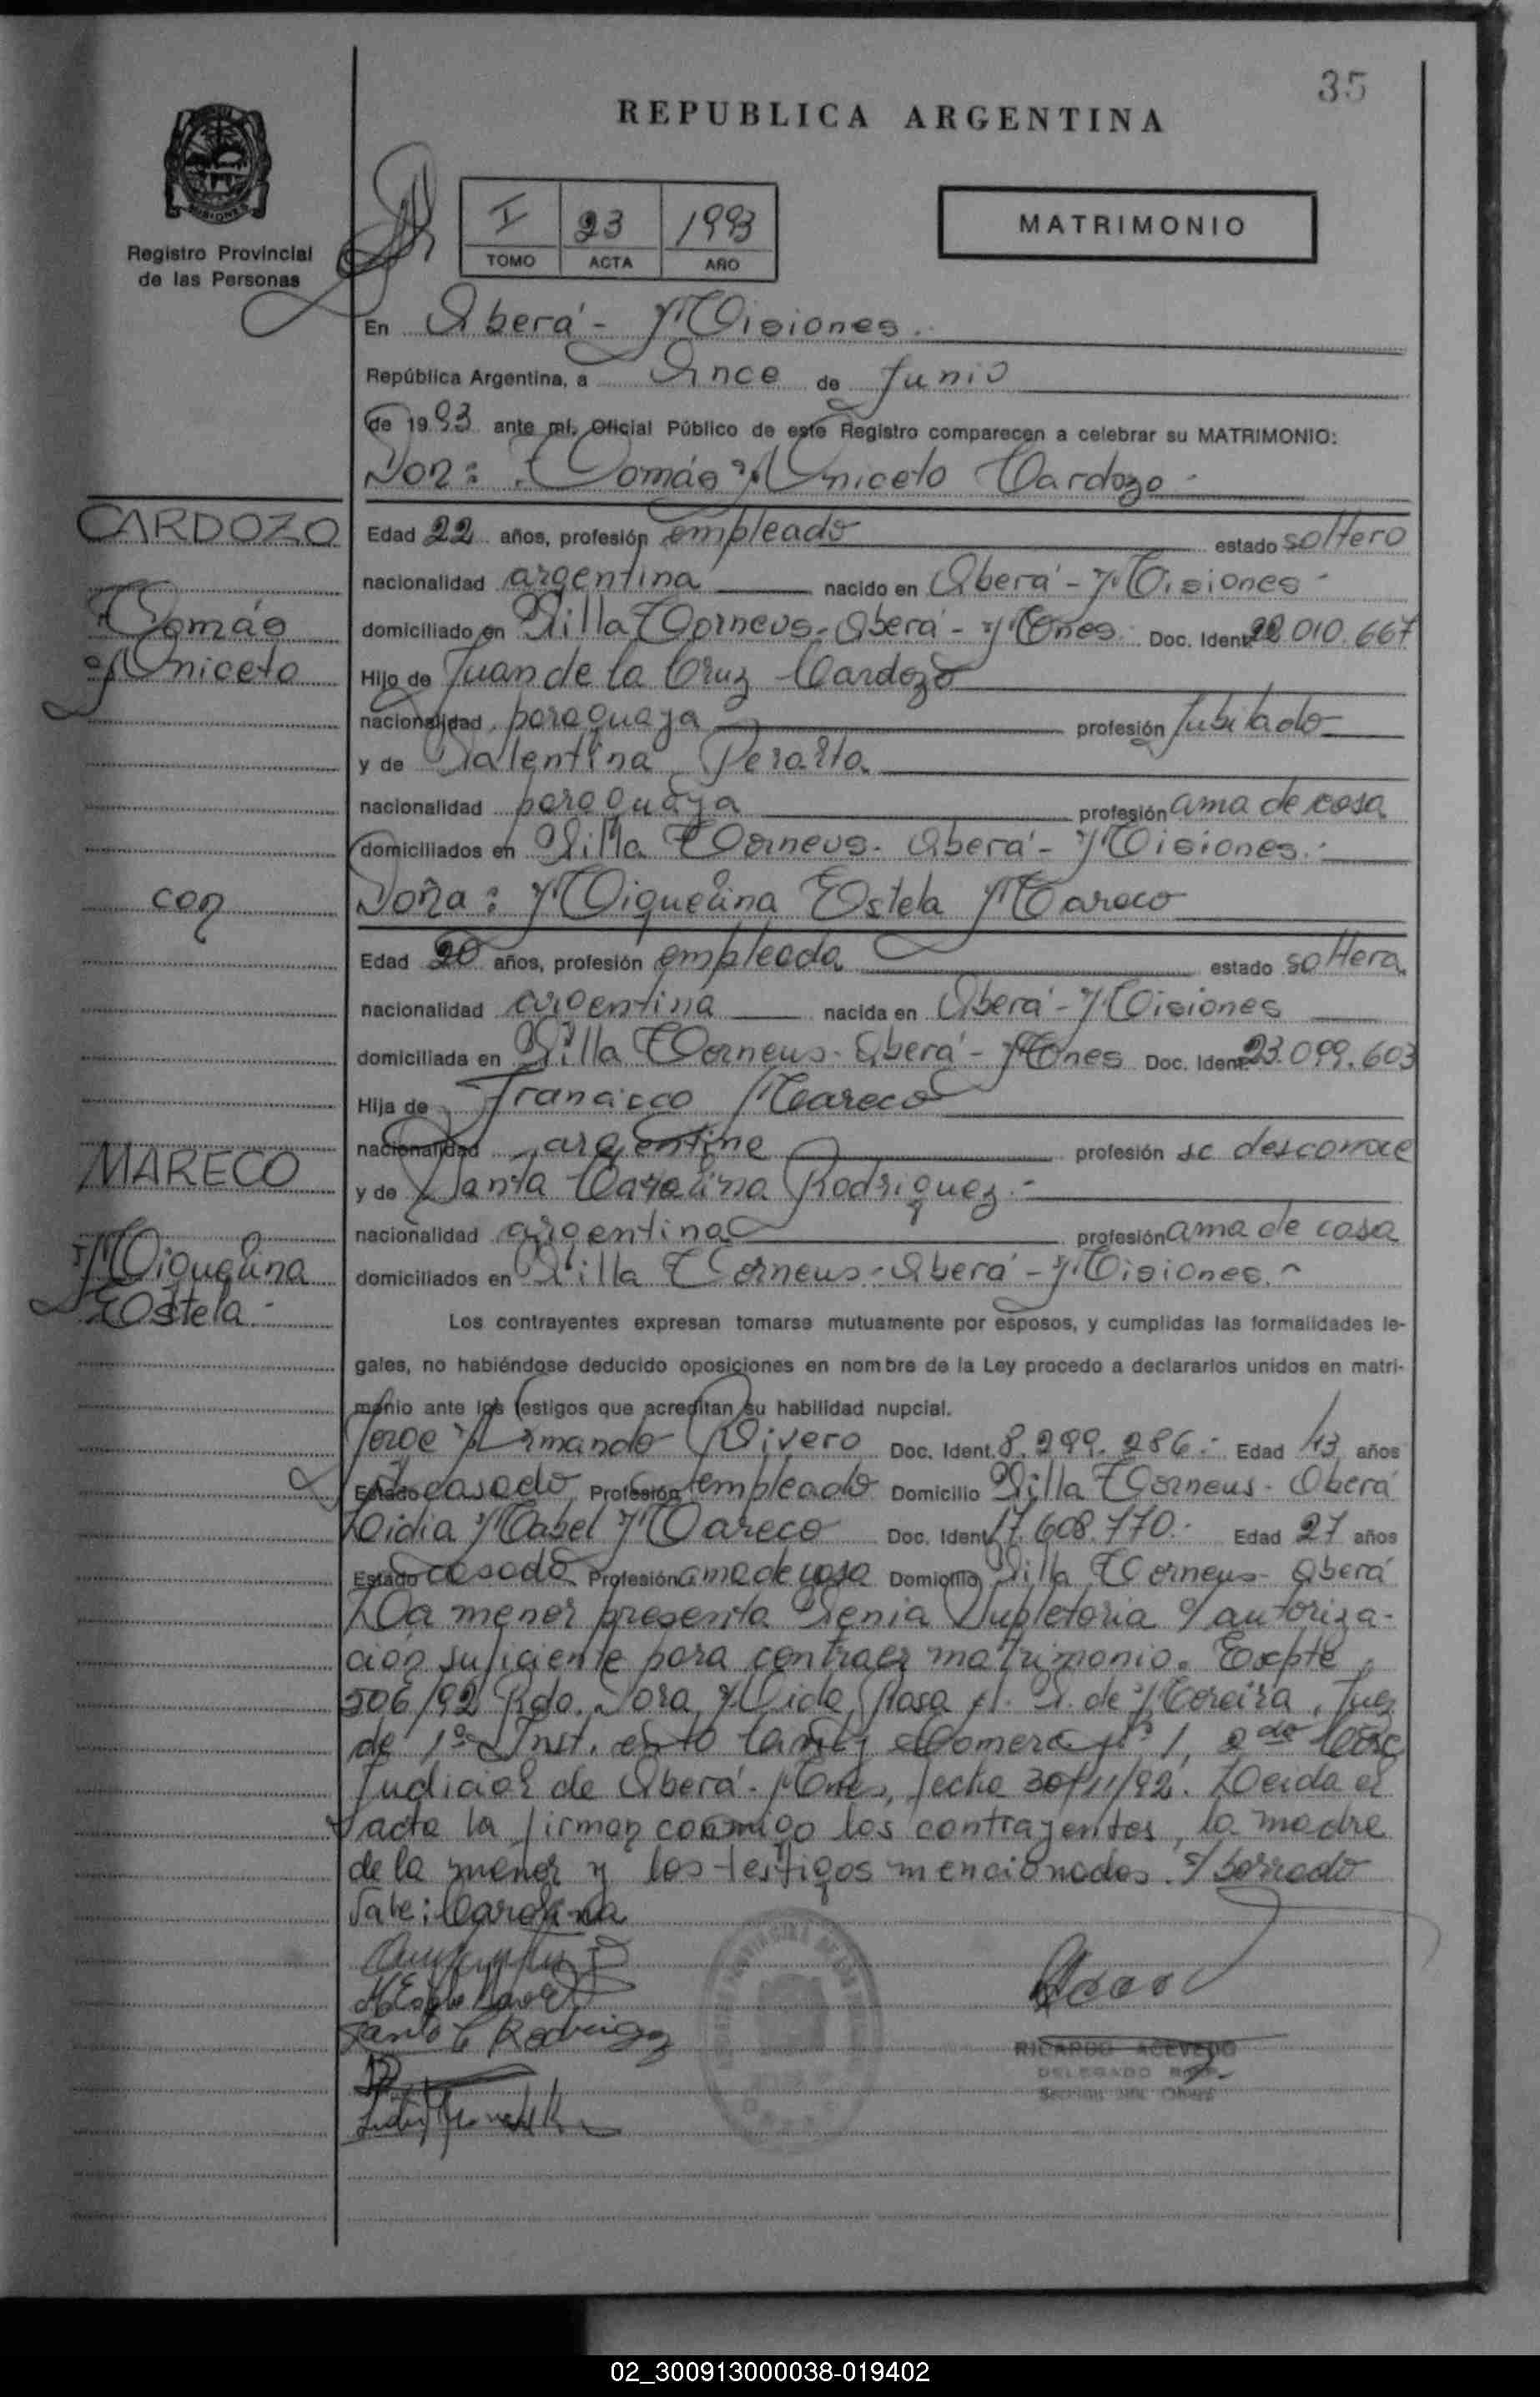 35
REPUBLICA ARGENTINA
I 23 1993
TOMO ACTA AÑO
MATRIMONIO
MISIONES
Registro Provincial
de las Personas
En Oberá - Misiones.
República Argentina, a Once de Junio
de 1993 ante mí, Oficial Público de este Registro comparecen a celebrar su MATRIMONIO:
Don: Tomás Aniceto Cardozo -
CARDOZO
Tomás
Aniceto
Edad 22 años, profesión empleado estado soltero
nacionalidad argentina nacido en Oberá - Misiones -
domiciliado en Villa Torneus - Oberá - Mnes. Doc. Ident. 22.010.667
Hijo de Juan de la Cruz Cardozo
nacionalidad paraguaya profesión Jubilado
y de Valentina Peralta
nacionalidad paraguaya profesión ama de casa
domiciliados en Villa Torneus - Oberá - Misiones.-
con
Doña: Miguelina Estela Mareco
Edad 20 años, profesión empleada estado soltera
nacionalidad argentina nacida en Oberá - Misiones
domiciliada en Villa Torneus - Oberá - Mnes Doc. Ident. 23.099.603
Hija de Francisco Mareco
nacionalidad argentina profesión se desconoce
MARECO
Miguelina
Estela.-
y de Santa Carolina Rodriguez.-
nacionalidad argentina profesión ama de casa
domiciliados en Villa Torneus - Oberá - Misiones.-
Los contrayentes expresan tomarse mutuamente por esposos, y cumplidas las formalidades le-
gales, no habiéndose deducido oposiciones en nombre de la Ley procedo a declararlos unidos en matri-
monio ante los testigos que acreditan su habilidad nupcial.
Jorge Armando Rivero Doc. Ident. 8.299.286.- Edad 43 años
Estado casado Profesión empleado Domicilio Villa Torneus - Oberá
Lidia Mabel Mareco Doc. Ident. 17.608.770.- Edad 27 años
Estado casada Profesión ama de casa Domicilio Villa Torneus - Oberá
La menor presenta Venia Supletoria y autoriza-
ción suficiente para contraer matrimonio. Expte
506/92 Rdo. Dora Rosa de Pereira, Juez
de 1º Inst. Comerc Nº 1, 2da Circ
Judicial de Oberá - Mnes, fecha 30/11/92. Leida el
acta la firman conmigo los contrayentes, la madre
de la menor y los testigos mencionados. S/borrado
Vale: Carolina
Santa C Rodriguez
RICARDO ACEVEDO
DELEGADO
Oberá
02_300913000038-019402